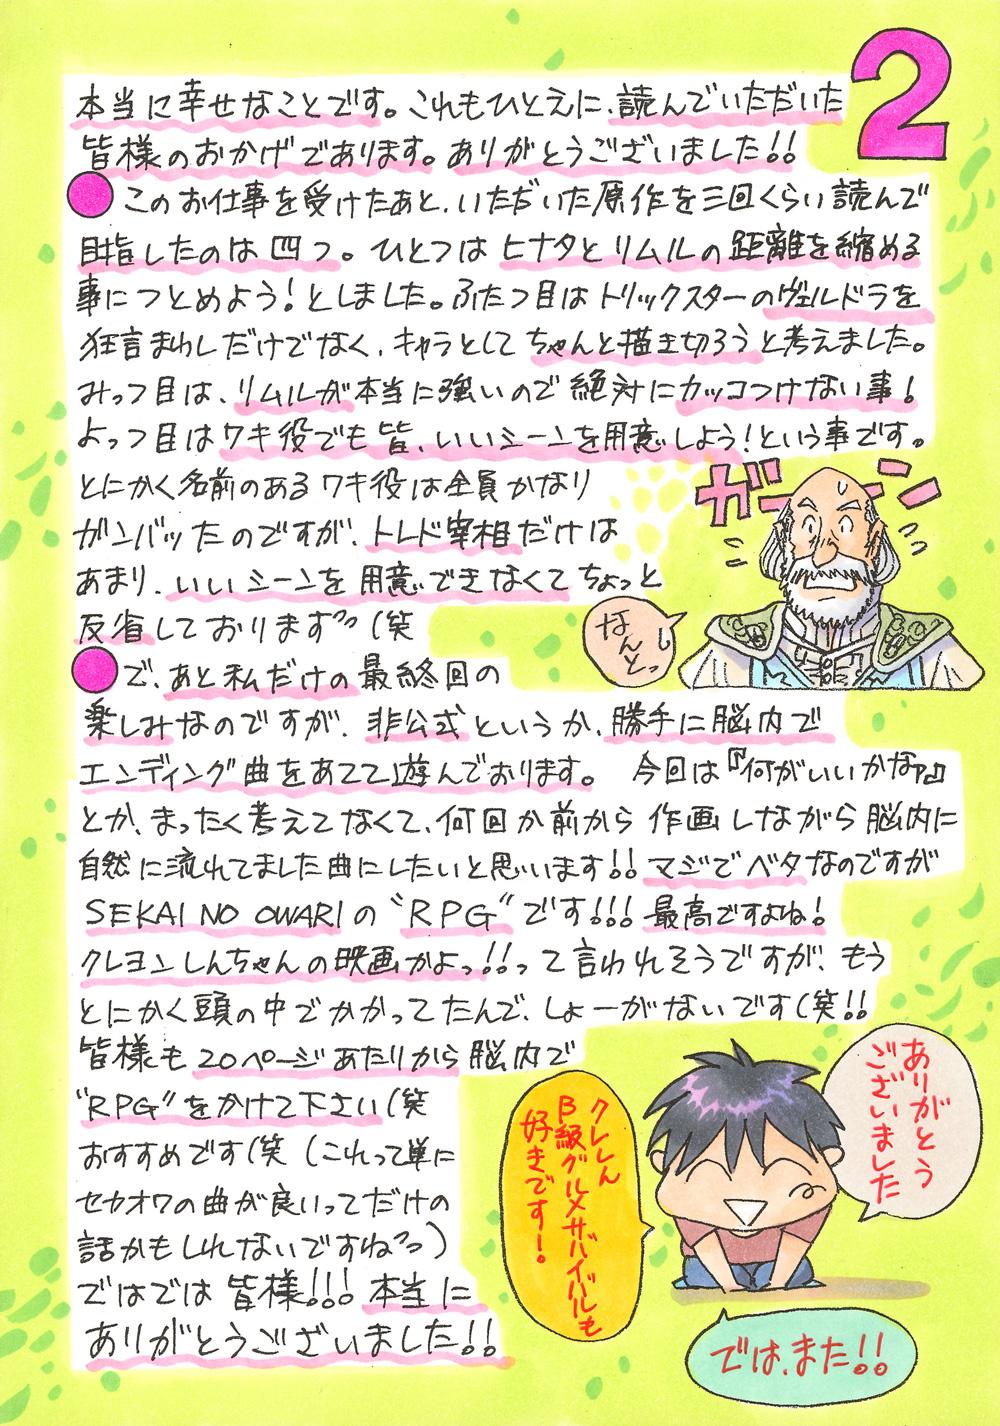 2
本当に幸せなことです。これもひとえに、読んでいただいた
皆様のおかげであります。ありがとうございました!!
●このお仕事を受けたあと、いただいた原作を三回くらい読んで
目指したのは四つ。ひとつはヒナタとリムルの距離を縮める
事につとめよう!としました。ふたつ目はトリックスターのヴェルドラを
狂言まわしだけでなく、キャラとしてちゃんと描き切ろうと考えました。
みっつ目は、リムルが本当に強いので絶対にカッコつけない事!
よっつ目はワキ役でも皆、いいシーンを用意しよう!という事です。
とにかく名前のあるワキ役は全員かなり
ガンバッたのですが、トレド宰相だけは
あまり、いいシーンを用意できなくてちょっと
反省しております(笑
ガーーン
なんとっ
●で、あと私だけの最終回の
楽しみなのですが、非公式というか、勝手に脳内で
エンディング曲をあてて遊んでおります。 今回は『何がいいかなァ』
とか、まったく考えてなくて、何回か前から作画しながら脳内に
自然に流れてました曲にしたいと思います!!マジでベタなのですが
SEKAI NO OWARIの"RPG"です!!!最高ですよね!
クレヨンしんちゃんの映画かよっ!!って言われそうですが、もう
とにかく頭の中でかかってたんで、しょーがないです(笑!!
皆様も20ページあたりから脳内で
"RPG"をかけて下さい(笑
おすすめです(笑(これって単に
セカオワの曲が良いってだけの
話かもしれないですね)
ではでは皆様!!!本当に
ありがとうございました!!
ありがとう
ございました
クレしん
B級グルメサバイバルも
好きです!
では、また!!